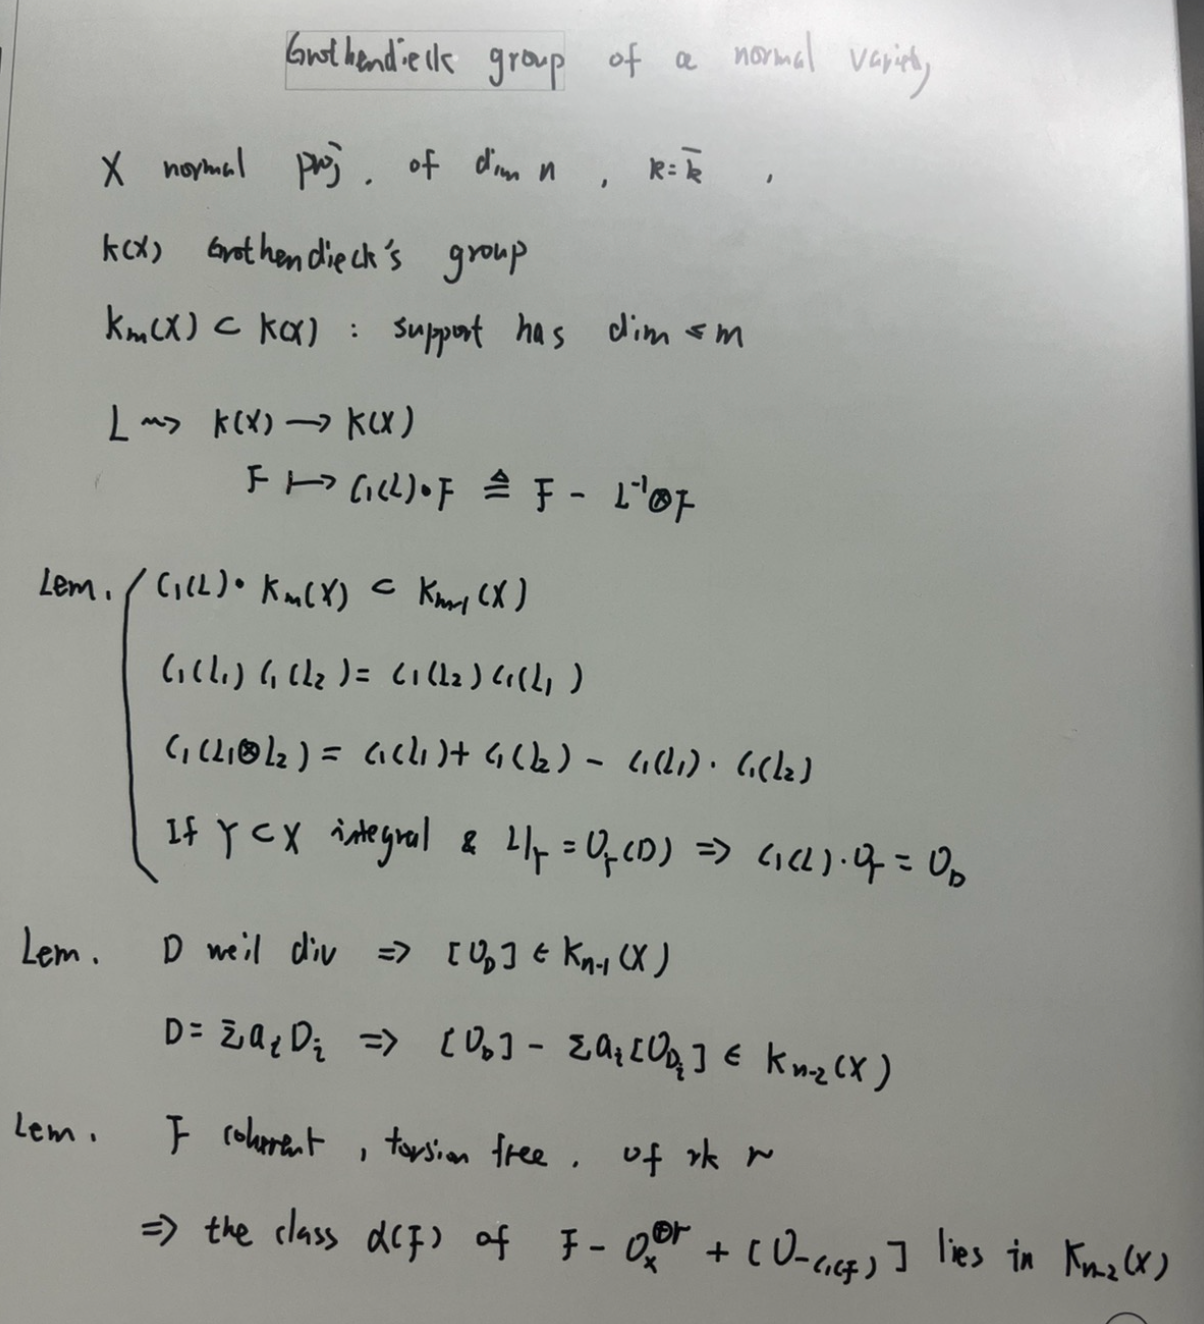 Grothendieck group of a normal variety
X normal proj. of dim n , k=k̄ ,
K(X) Grothendieck's group
Kₘ(X) ⊂ K(X) : support has dim ≤ m
L ⇝ K(X) → K(X)
F ↦ C₁(L)•F ≜ F - L⁻¹⊗F
Lem. C₁(L)• Kₘ(X) ⊂ Kₘ₋₁(X)
C₁(L₁) C₁(L₂) = C₁(L₂) C₁(L₁)
C₁(L₁⊗L₂) = C₁(L₁) + C₁(L₂) - C₁(L₁) · C₁(L₂)
If Y ⊂ X integral & L|_Y = O_Y(D) ⇒ C₁(L)·O_Y = O_D
Lem. D weil div ⇒ [O_D] ∈ Kₙ₋₁(X)
D = Σaᵢ Dᵢ ⇒ [O_D] - Σaᵢ[O_{Dᵢ}] ∈ Kₙ₋₂(X)
Lem. F coherent , torsion free . of rk r
⇒ the class α(F) of F - O_X^{⊕r} + [O_{-C₁(F)}] lies in Kₙ₋₂(X)